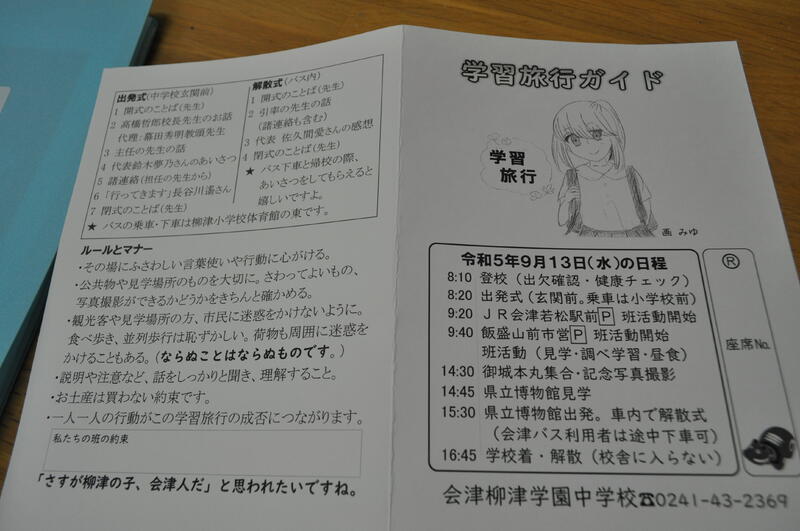 出発式(中学校玄関前)
1 開式のことば(先生)
2 高橋哲郎校長先生のお話
代理:幕田秀明教頭先生
3 主任の先生の話
4 代表鈴木夢乃さんのあいさつ
5 諸連絡(担任の先生から)
6 「行ってきます」長谷川遙さん
7 閉式のことば(先生)
★ バスの乗車・下車は柳津小学校体育館の東です。
解散式(バス内)
1 開式のことば(先生)
2 引率の先生の話
(諸連絡も含む)
3 代表 佐久間愛さんの感想
4 閉式のことば(先生)
★ バス下車と帰校の際、
あいさつをしてもらえると
嬉しいですよ。
ルールとマナー
・その場にふさわしい言葉使いや行動に心がける。
・公共物や見学場所のものを大切に。さわってよいもの、
写真撮影ができるかどうかをきちんと確かめる。
・観光客や見学場所の方、市民に迷惑をかけないように。
食べ歩き、並列歩行は恥ずかしい。荷物も周囲に迷惑を
かけることもある。(ならぬことはならぬものです。)
・説明や注意など、話をしっかりと聞き、理解すること。
・お土産は買わない約束です。
・一人一人の行動がこの学習旅行の成否につながります。
私たちの班の約束
「さすが柳津の子、会津人だ」と思われたいですね。
学習旅行ガイド
学習
旅行
画 みゆ
令和5年9月13日(水)の日程
8:10 登校(出欠確認・健康チェック)
8:20 出発式(玄関前。乗車は小学校前)
9:20 JR会津若松駅前P 班活動開始
9:40 飯盛山前市営P 班活動開始
班活動(見学・調べ学習・昼食)
14:30 御城本丸集合・記念写真撮影
14:45 県立博物館見学
15:30 県立博物館出発。車内で解散式
(会津バス利用者は途中下車可)
16:45 学校着・解散(校舎に入らない)
Ⓡ
座席No.
会津柳津学園中学校☎0241-43-2369